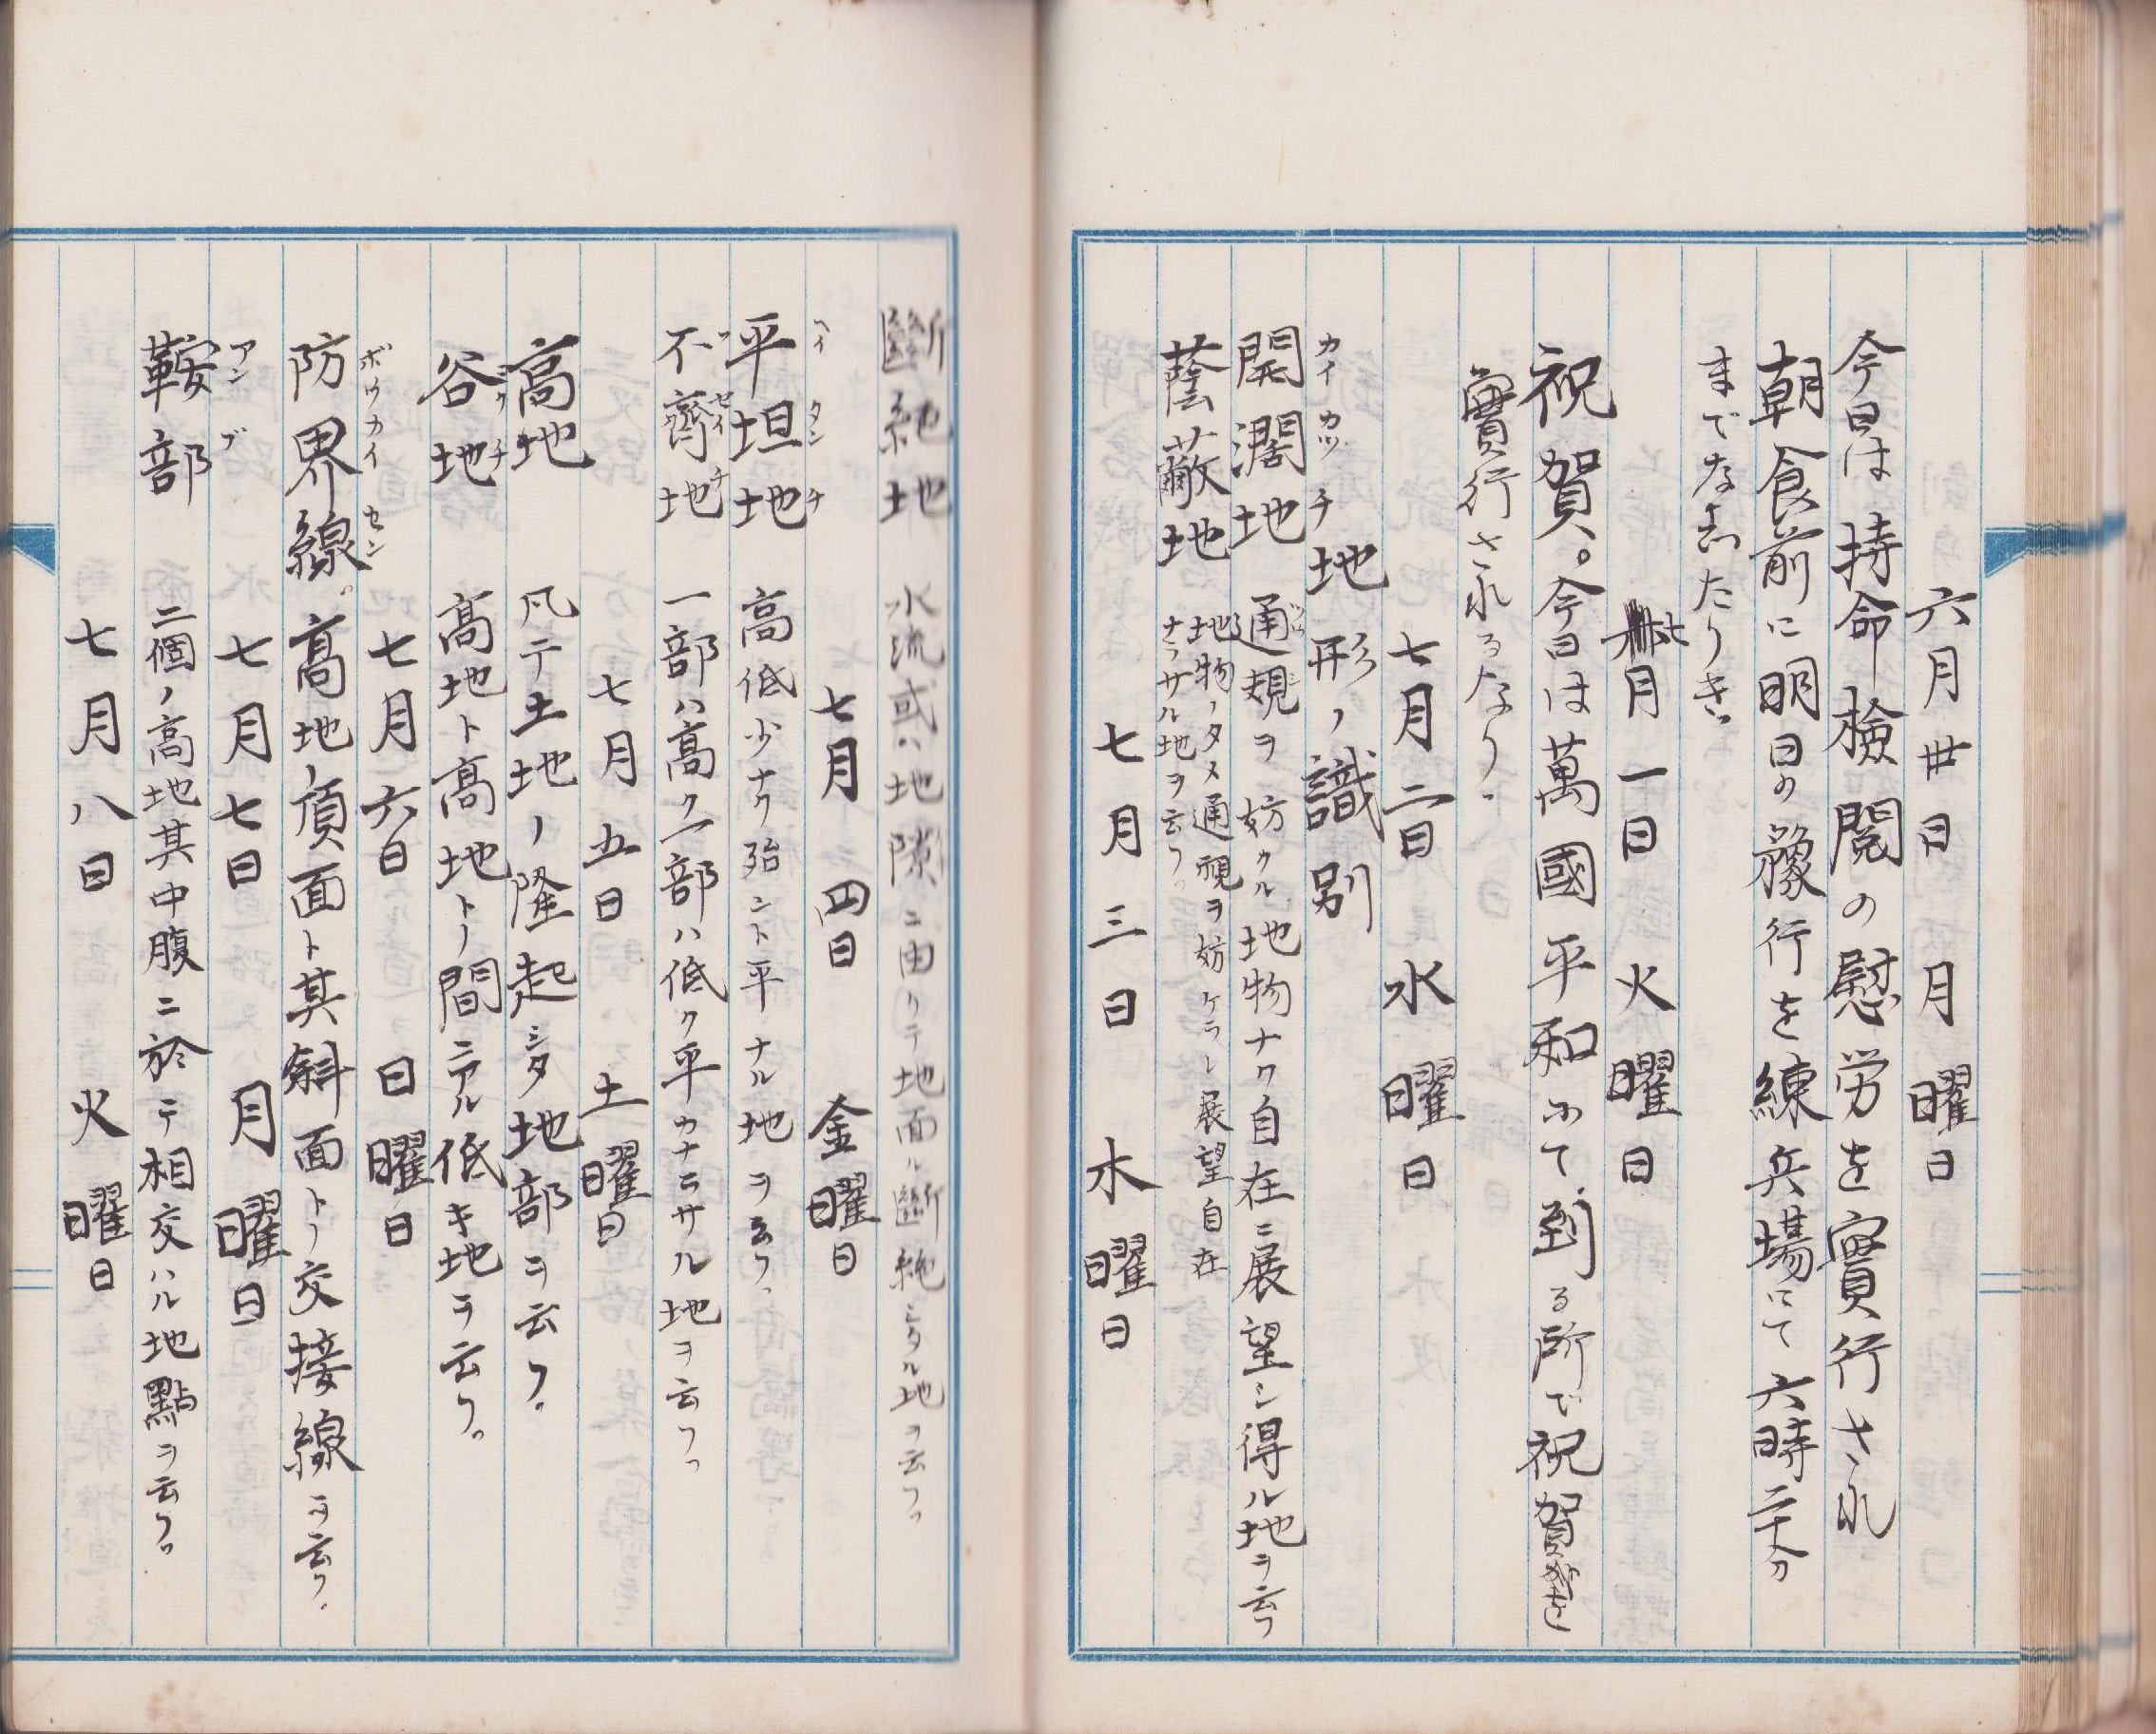 六月丗日　月曜日
今日は持命檢閲の慰労を實行され
朝食前に明日の豫行を練兵場にて六時二十分
までなゑたりき
七月一日　火曜日
祝賀。今日は萬國平和にて到る所で祝賀を
實行されるなり。
七月二日　水曜日
地形ノ識別
カイカツチ
開濶地　通視ヲ妨クル地物ナク自在ニ展望シ得ル地ヲ云フ
蔭蔽地　地物ノタメ通視ヲ妨ケラレ展望自在
ナラサル地ヲ云フ。
七月三日　木曜日
斷絶地　水流或ハ地隙ニ由リテ地面ノ斷絶シタル地ヲ云フ。
七月四日　金曜日
ヘイタンチ
平坦地　高低少ナク殆ント平ナル地ヲ云フ。
セイチ
不齊地　一部ハ高ク一部ハ低ク平カナラサル地ヲ云フ。
七月五日　土曜日
高地　凡テ土地ノ隆起シタ地部ヲ云フ。
谷地　高地ト高地トノ間ニアル低キ地ヲ云フ。
七月六日　日曜日
ボウカイセン
防界線。高地頂面ト其斜面トノ交接線ヲ云フ。
七月七日　月曜日
アンブ
鞍部　二個ノ高地其中腹ニ於テ相交ハル地點ヲ云フ。
七月八日　火曜日